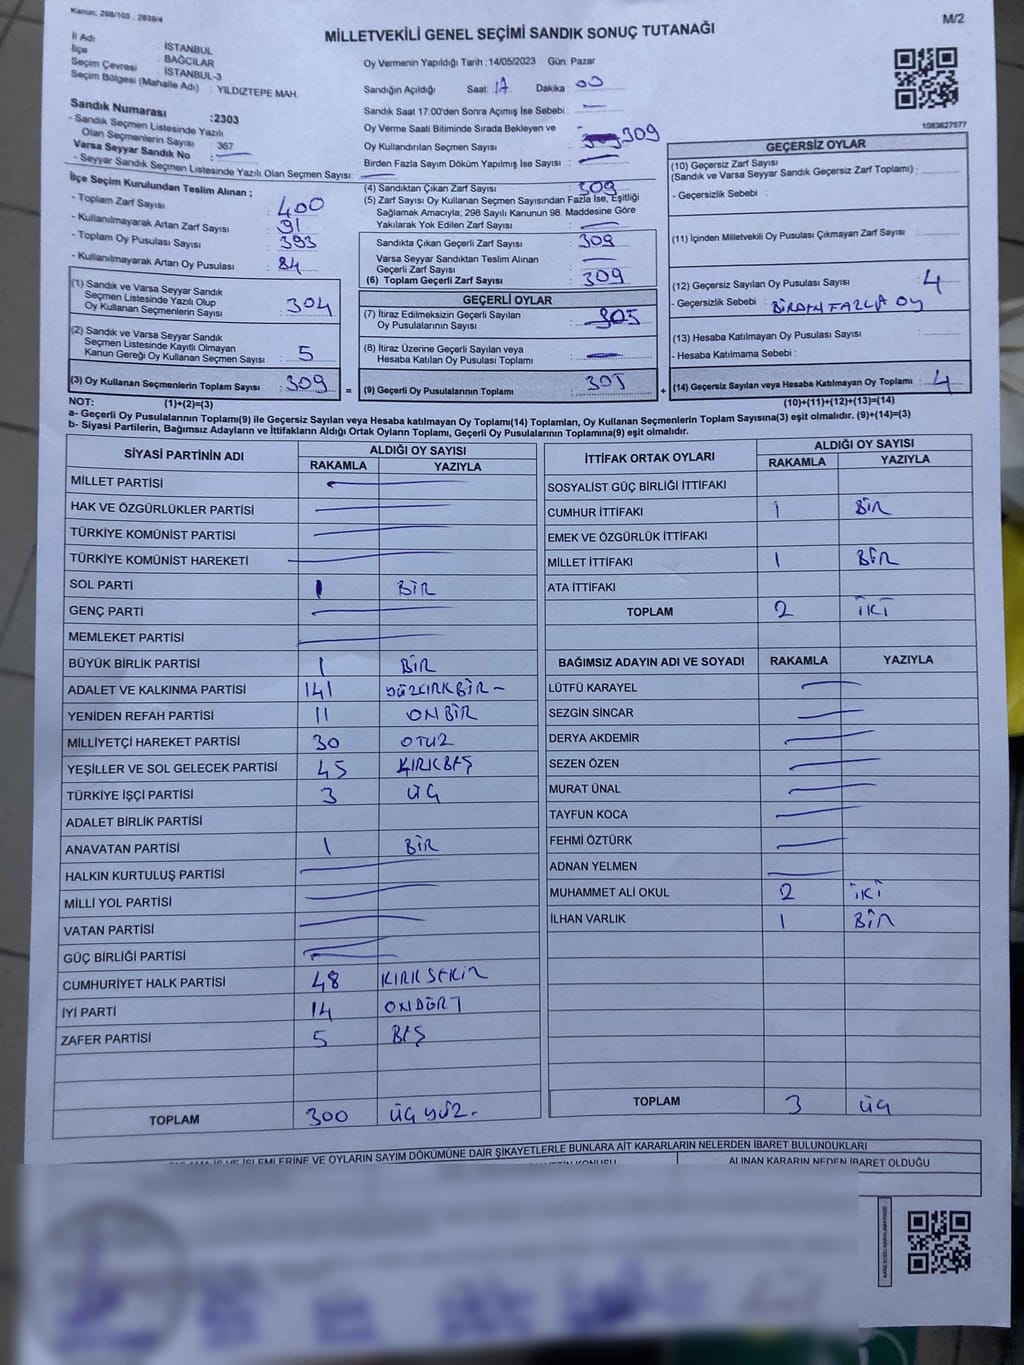 Kanun: 298/105 , 2839/4
M/2
MİLLETVEKİLİ GENEL SEÇİMİ SANDIK SONUÇ TUTANAĞI
İl Adı : İSTANBUL
İlçe : BAĞCILAR
Seçim Çevresi : İSTANBUL-3
Seçim Bölgesi (Mahalle Adı) : YILDIZTEPE MAH.
Sandık Numarası :2303
- Sandık Seçmen Listesinde Yazılı
Olan Seçmenlerin Sayısı : 367
Varsa Seyyar Sandık No :
- Seyyar Sandık Seçmen Listesinde Yazılı Olan Seçmen Sayısı:
Oy Vermenin Yapıldığı Tarih :14/05/2023 Gün: Pazar
Sandığın Açıldığı Saat: 17 Dakika : 00
Sandık Saat 17:00'den Sonra Açımış İse Sebebi :
Oy Verme Saati Bitiminde Sırada Bekleyen ve
Oy Kullandırılan Seçmen Sayısı : 309
Birden Fazla Sayım Döküm Yapılmış İse Sayısı :
1083627577
İlçe Seçim Kurulundan Teslim Alınan ;
- Toplam Zarf Sayısı : 400
- Kullanılmayarak Artan Zarf Sayısı : 91
- Toplam Oy Pusulası Sayısı : 393
- Kullanılmayarak Artan Oy Pusulası : 84
(1) Sandık ve Varsa Seyyar Sandık
Seçmen Listesinde Yazılı Olup
Oy Kullanan Seçmenlerin Sayısı : 304
(2) Sandık ve Varsa Seyyar Sandık
Seçmen Listesinde Kayıtlı Olmayan
Kanun Gereği Oy Kullanan Seçmen Sayısı : 5
(3) Oy Kullanan Seçmenlerin Toplam Sayısı : 309 =
(4) Sandıktan Çıkan Zarf Sayısı : 309
(5) Zarf Sayısı Oy Kullanan Seçmen Sayısından Fazla İse, Eşitliği
Sağlamak Amacıyla, 298 Sayılı Kanunun 98. Maddesine Göre
Yakılarak Yok Edilen Zarf Sayısı :
Sandıkta Çıkan Geçerli Zarf Sayısı : 309
Varsa Seyyar Sandıktan Teslim Alınan
Geçerli Zarf Sayısı :
(6) Toplam Geçerli Zarf Sayısı : 309
GEÇERLİ OYLAR
(7) İtiraz Edilmeksizin Geçerli Sayılan
Oy Pusulalarının Sayısı : 305
(8) İtiraz Üzerine Geçerli Sayılan veya
Hesaba Katılan Oy Pusulası Toplamı :
(9) Geçerli Oy Pusulalarının Toplamı : 305 +
GEÇERSİZ OYLAR
(10) Geçersiz Zarf Sayısı
(Sandık ve Varsa Seyyar Sandık Geçersiz Zarf Toplamı) :
- Geçersizlik Sebebi :
(11) İçinden Milletvekili Oy Pusulası Çıkmayan Zarf Sayısı :
(12) Geçersiz Sayılan Oy Pusulası Sayısı : 4
- Geçersizlik Sebebi : BİRDEN FAZLA OY
(13) Hesaba Katılmayan Oy Pusulası Sayısı :
- Hesaba Katılmama Sebebi :
(14) Geçersiz Sayılan veya Hesaba Katılmayan Oy Toplamı : 4
NOT: (1)+(2)=(3) (10)+(11)+(12)+(13)=(14)
a- Geçerli Oy Pusulalarının Toplamı(9) ile Geçersiz Sayılan veya Hesaba katılmayan Oy Toplamı(14) Toplamları, Oy Kullanan Seçmenlerin Toplam Sayısına(3) eşit olmalıdır. (9)+(14)=(3)
b- Siyasi Partilerin, Bağımsız Adayların ve İttifakların Aldığı Ortak Oyların Toplamı, Geçerli Oy Pusulalarının Toplamına(9) eşit olmalıdır.
SİYASİ PARTİNİN ADI ALDIĞI OY SAYISI
RAKAMLA YAZIYLA
MİLLET PARTİSİ
HAK VE ÖZGÜRLÜKLER PARTİSİ
TÜRKİYE KOMÜNİST PARTİSİ
TÜRKİYE KOMÜNİST HAREKETİ
SOL PARTİ 1 BİR
GENÇ PARTİ
MEMLEKET PARTİSİ
BÜYÜK BİRLİK PARTİSİ 1 BİR
ADALET VE KALKINMA PARTİSİ 141 YÜZKIRKBİR
YENİDEN REFAH PARTİSİ 11 ONBİR
MİLLİYETÇİ HAREKET PARTİSİ 30 OTUZ
YEŞİLLER VE SOL GELECEK PARTİSİ 45 KIRKBEŞ
TÜRKİYE İŞÇİ PARTİSİ 3 ÜÇ
ADALET BİRLİK PARTİSİ
ANAVATAN PARTİSİ 1 BİR
HALKIN KURTULUŞ PARTİSİ
MİLLİ YOL PARTİSİ
VATAN PARTİSİ
GÜÇ BİRLİĞİ PARTİSİ
CUMHURİYET HALK PARTİSİ 48 KIRKSEKİZ
İYİ PARTİ 14 ONDÖRT
ZAFER PARTİSİ 5 BEŞ
TOPLAM 300 ÜÇ YÜZ.
İTTİFAK ORTAK OYLARI ALDIĞI OY SAYISI
RAKAMLA YAZIYLA
SOSYALİST GÜÇ BİRLİĞİ İTTİFAKI
CUMHUR İTTİFAKI 1 BİR
EMEK VE ÖZGÜRLÜK İTTİFAKI
MİLLET İTTİFAKI 1 BİR
ATA İTTİFAKI
TOPLAM 2 İKİ
BAĞIMSIZ ADAYIN ADI VE SOYADI RAKAMLA YAZIYLA
LÜTFÜ KARAYEL
SEZGİN SİNCAR
DERYA AKDEMİR
SEZEN ÖZEN
MURAT ÜNAL
TAYFUN KOCA
FEHMİ ÖZTÜRK
ADNAN YELMEN
MUHAMMET ALİ OKUL 2 İKİ
İLHAN VARLIK 1 BİR
TOPLAM 3 ÜÇ
İŞLEMLERİNE VE OYLARIN SAYIM DÖKÜMÜNE DAİR ŞİKAYETLERLE BUNLARA AİT KARARLARIN NELERDEN İBARET BULUNDUKLARI
ALINAN KARARIN NEDEN İBARET OLDUĞU